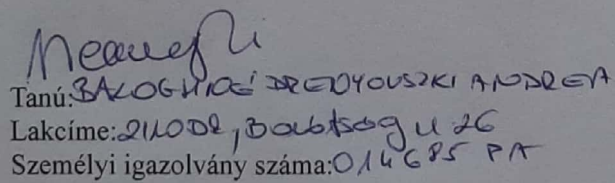 Tanú: BALOGHNÉ DREDYOVSZKI ANDREA
Lakcíme: u 26
Személyi igazolvány száma: 014685 PA